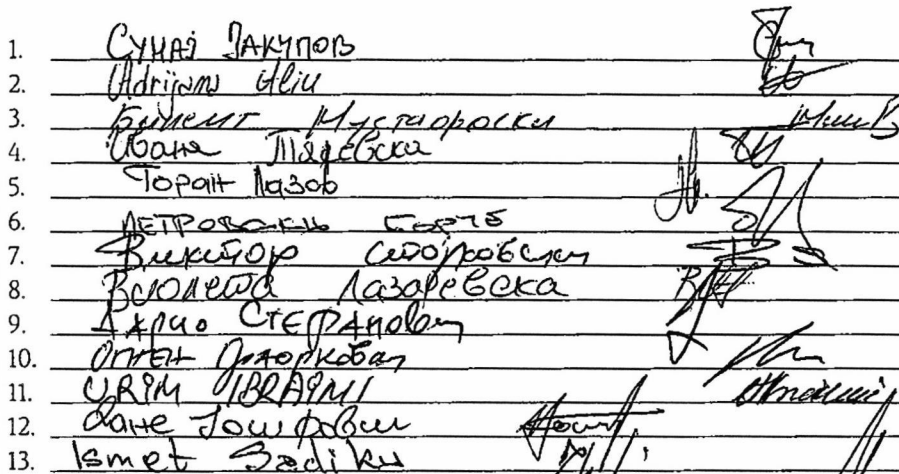 1. Сунај Јакупов
2. Adrijana Aliu
3. Билент Мустафоски
4. Ивана
5. Горан Лазов
6. Петровски Ѓорѓе
7. Виктор Стојковски
8. Виолета Лазаревска
9. Дарио Стефановски
10. Огнен
11. URIM IBRAIMI
12. Дане Јошевски
13. Ismet Sadiku